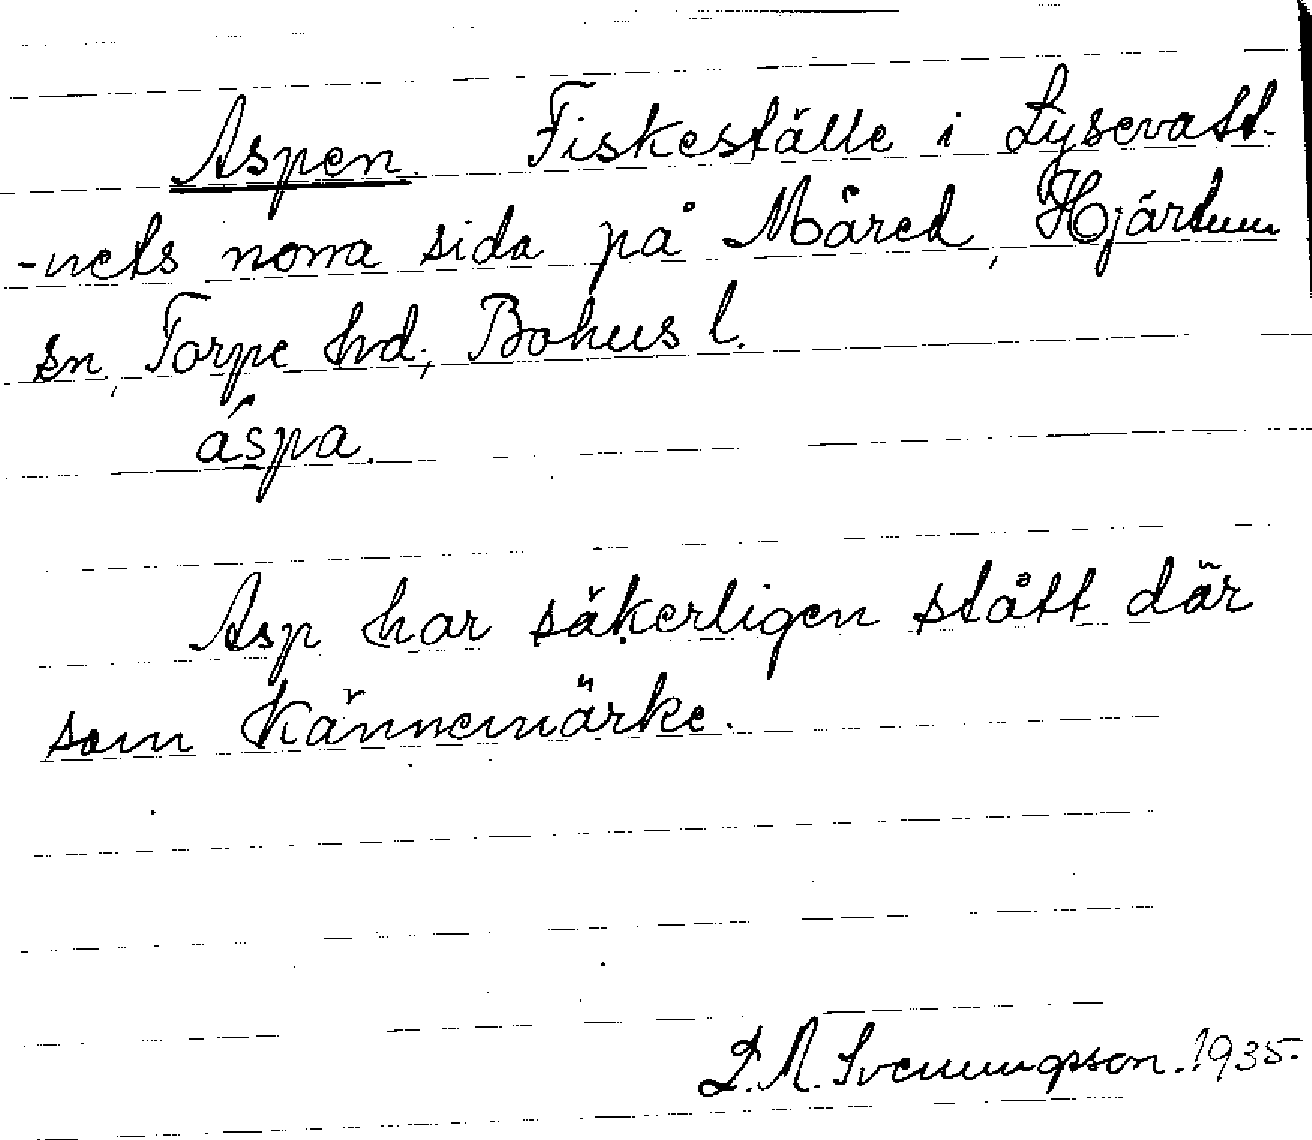 Aspen. Fiskeställe i Lysevatt-
-nets norra sida på Märed, Hjärtum
sn, Torpe hd, Bohus l.
áspa.
Asp har säkerligen stått där
som kännemärke.
D. A. Svenungsson. 1935.